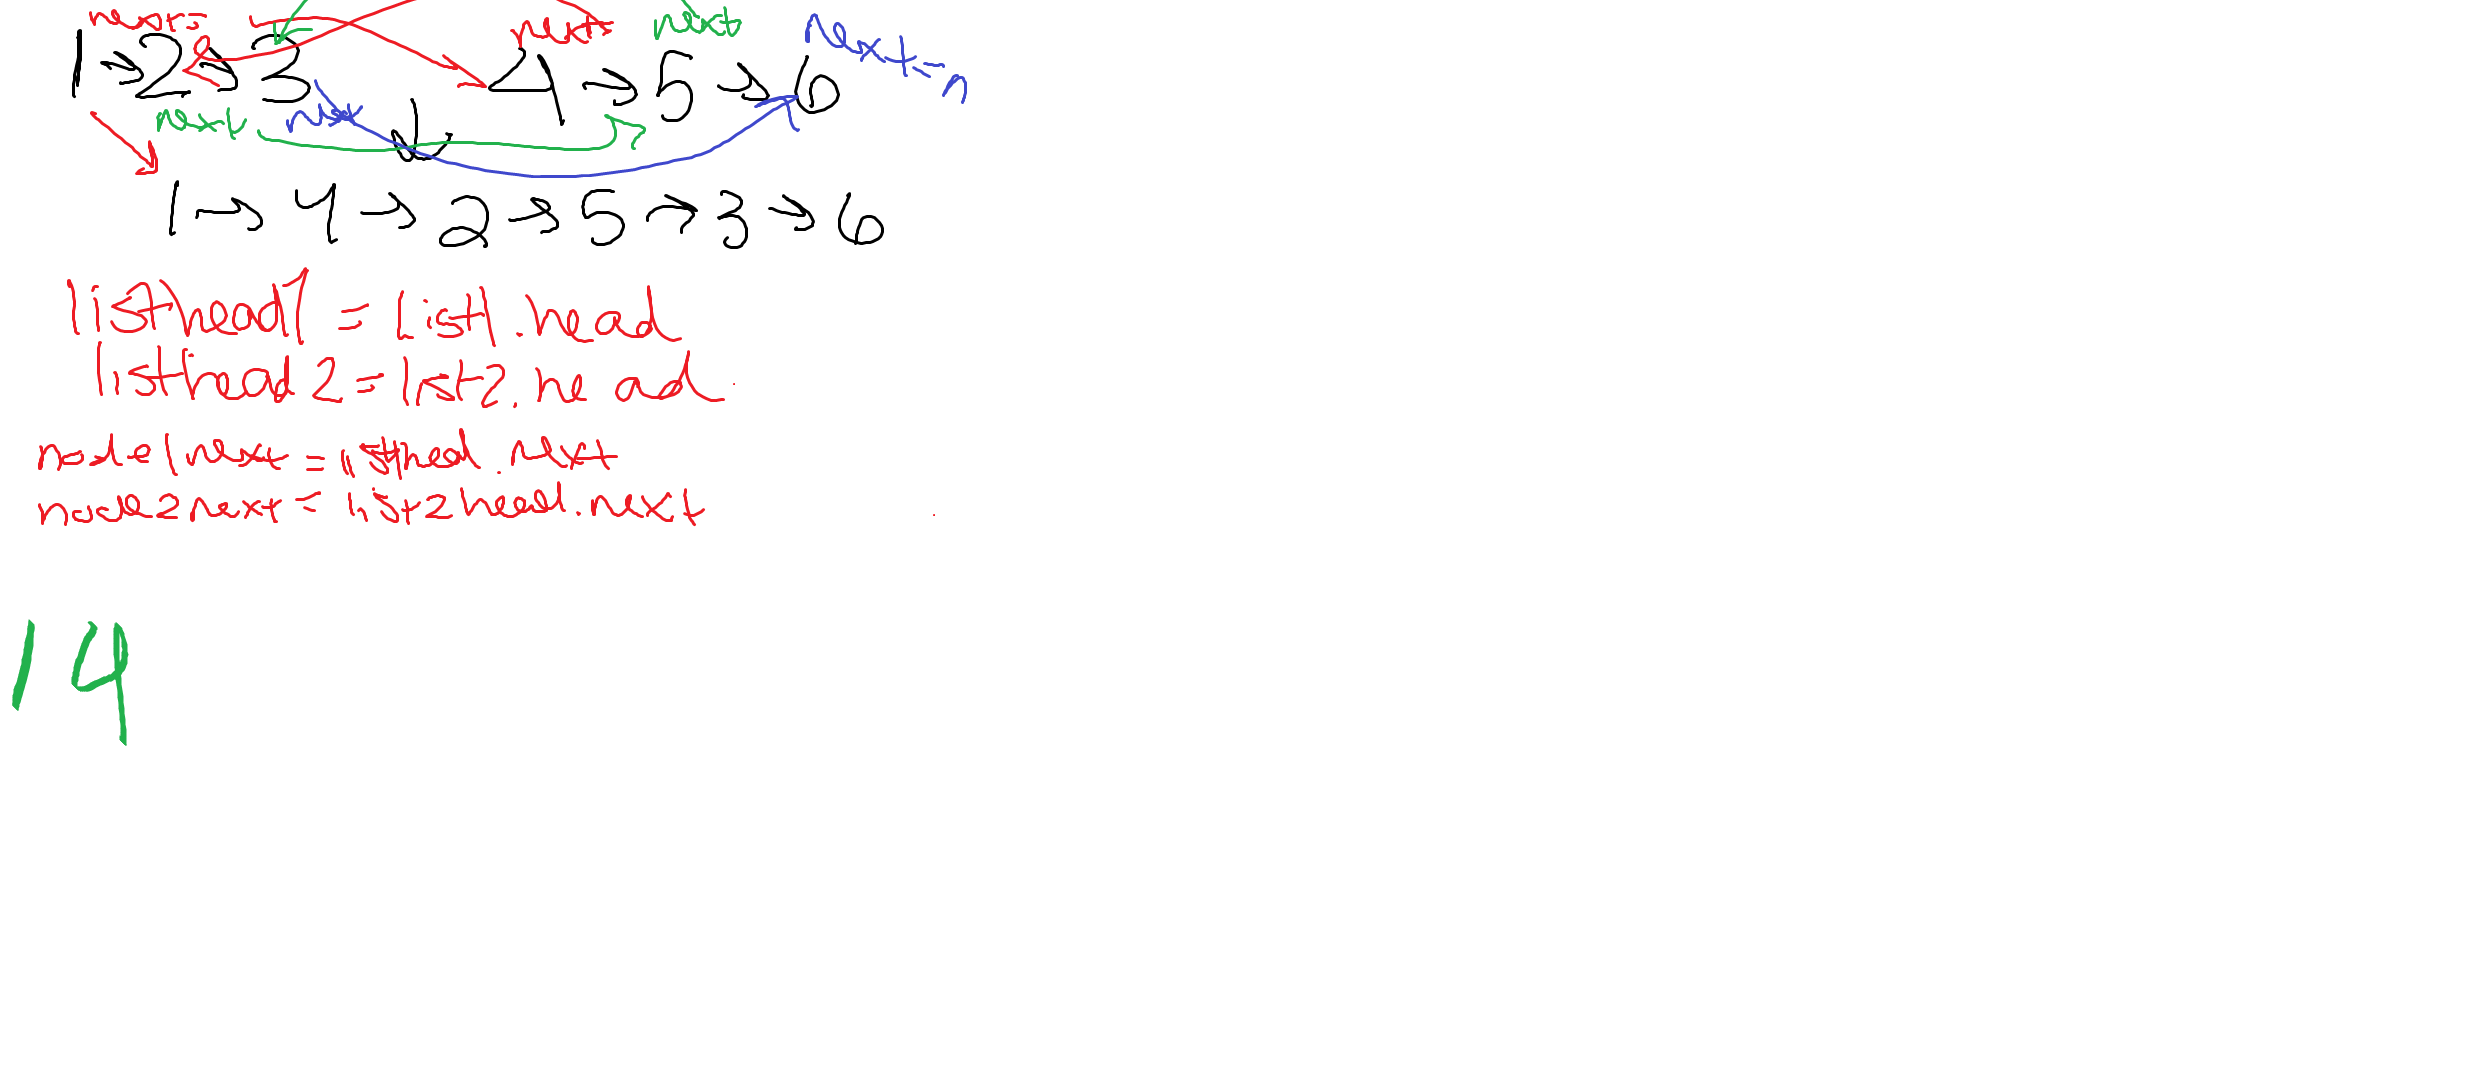 next= next= next next=n
1→2→3 4→5→6
next next
1→4→2→5→3→6
listhead1 = list1.head
listhead2=list2.head
node1next = listhead.next
node2next = list2head.next
14